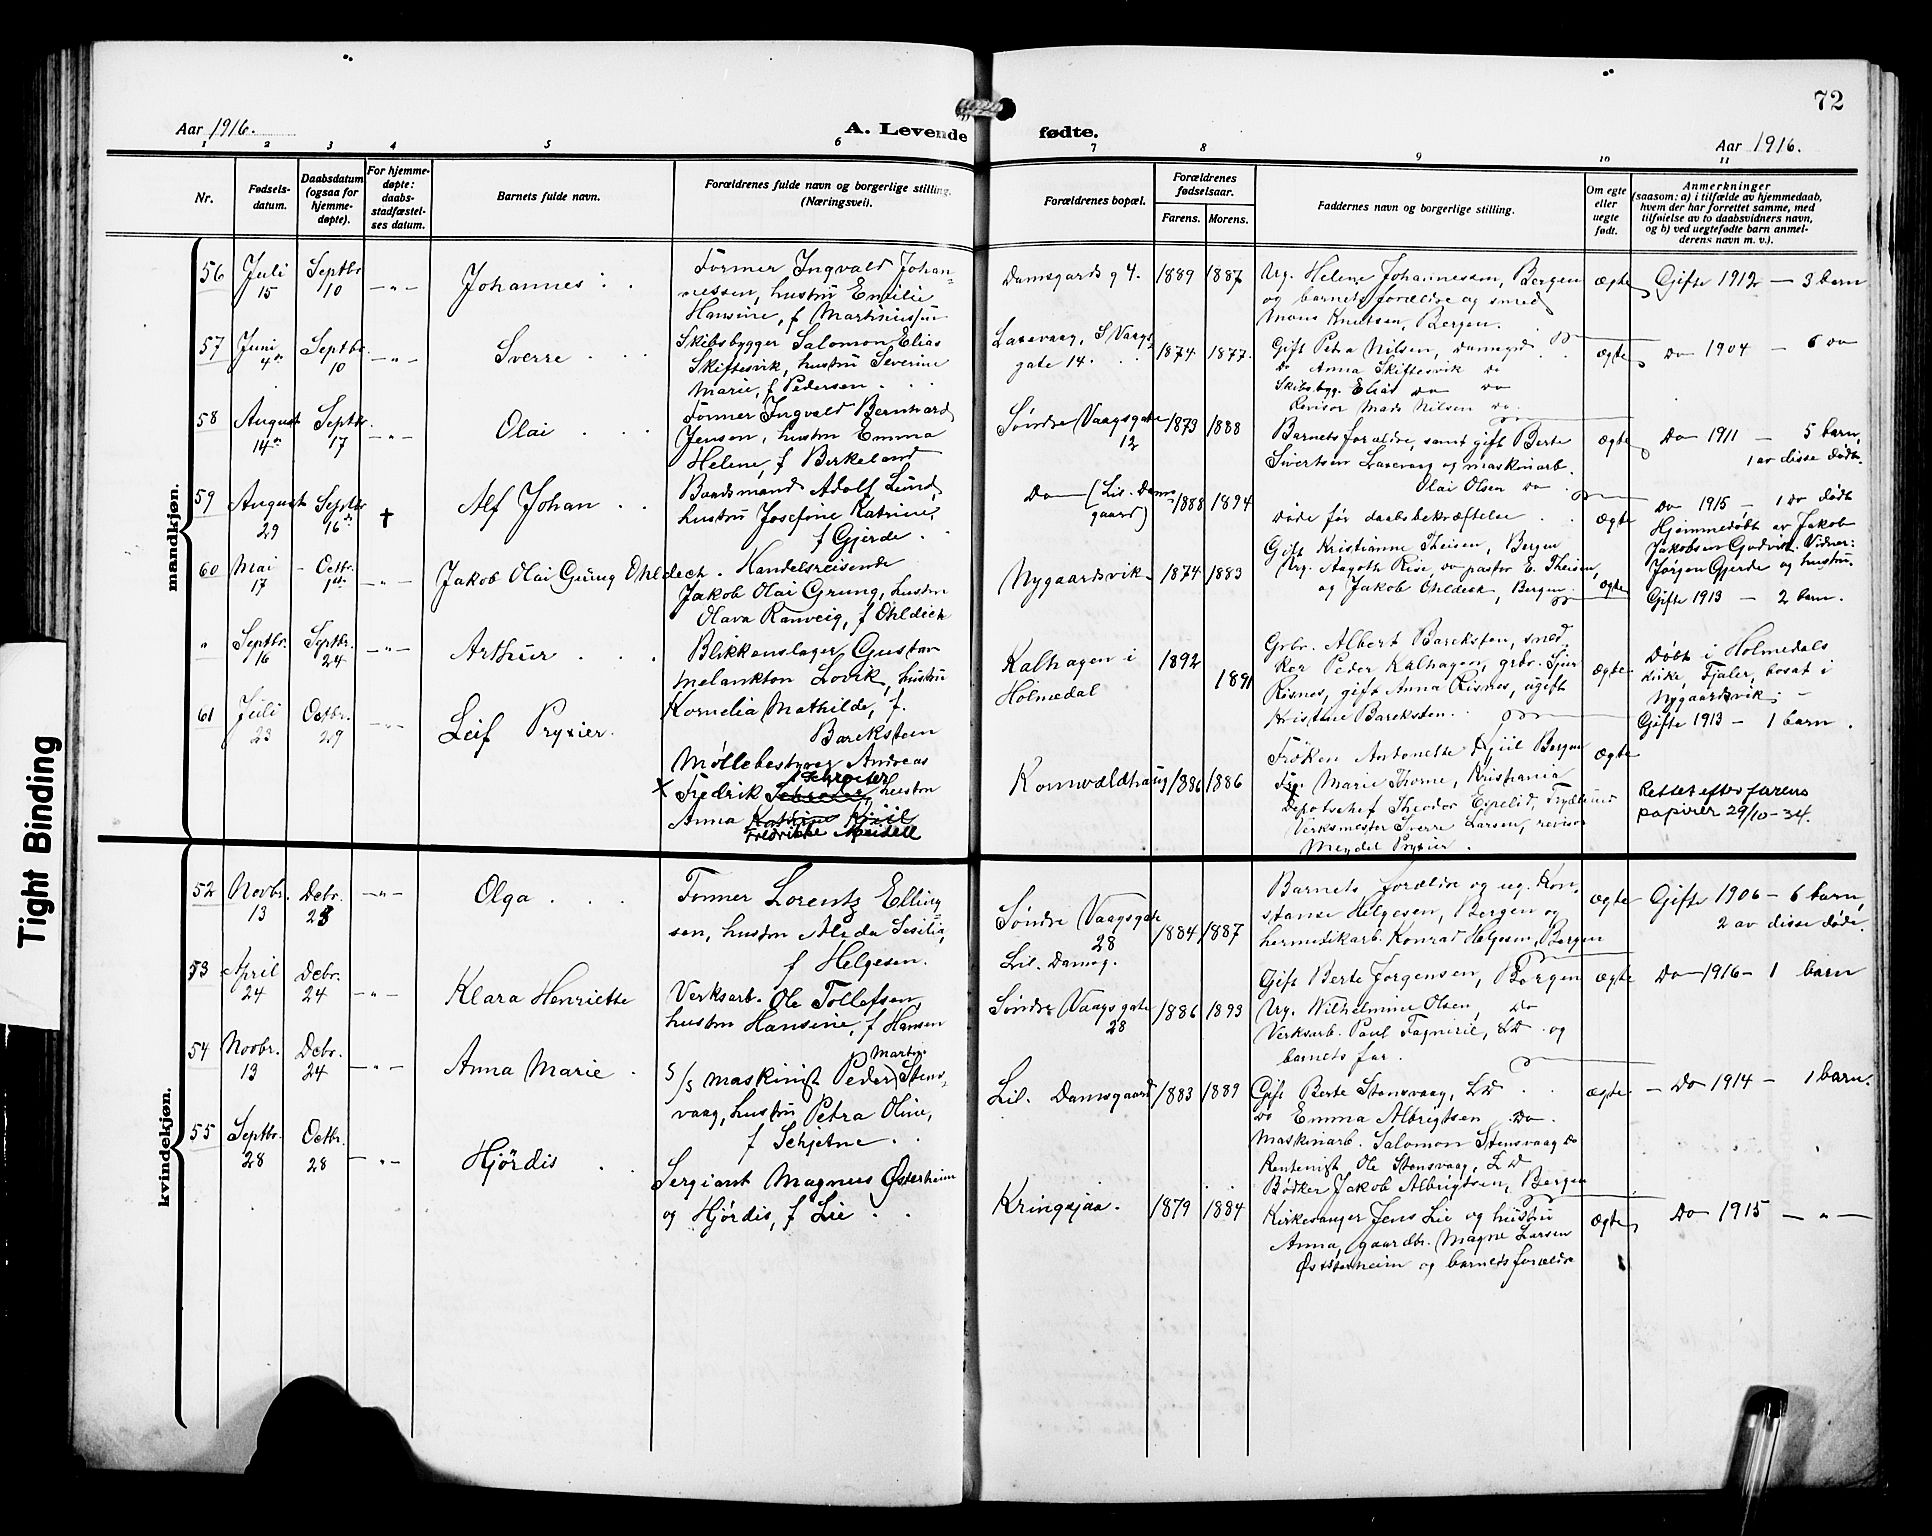 72
Aar 1916.
A. Levende fødte.
Aar 1916.
1 2 3 4 5 6 7 8 9 10 11
Nr.
Fødsels-
datum.
Daabsdatum
(ogsaa for
hjemme-
døpte).
For hjemme-
døpte:
daabs-
stadfæstel-
ses datum.
Barnets fulde navn.
Forældrenes fulde navn og borgerlige stilling.
(Næringsvei).
Forældrenes bopæl.
Forældrenes
fødselsaar.
Farens. Morens.
Faddernes navn og borgerlige stilling.
Om egte
eller
uegte
født.
Anmerkninger
(saasom: a) i tilfælde av hjemmedaab,
hvem der har forrettet samme, med
tilføielse av to daabsvidners navn,
og b) ved uegtefødte barn anmel-
derens navn m. v.).
Tight Binding
mandkjøn.
56 Juli 15 Septbr. 10 — " —
Johannes
Former Ingvald Johan-
nessen, hustru Emilie
Hansine, f Martinussen
Damsgards g 4. 1889 1887
Ug. Helene Johannessen, Bergen
og barnets forældre og smed
Mons Knutsen, Bergen.
Ægte
Gifte 1912 — 3 barn
57 Juni 4de Septbr. 10 — " —
Sverre
Skibsbygger Salomon Elias
Skiftesvik, hustru Severine
Marie, f Pedersen
Laxevaag, S Vaags
gate 14. 1874 1877.
Gift Petra Nilsen, Damsgrd
Do Anna Skiftesvik Do
Skibsbyg. Elias Do Do
Revisor Mads Nilsen Do.
ægte
Do 1904 — 6 Do
58 August 14de Septbr. 17 — " —
Olai
Former Ingvald Bernhard
Jensen, hustru Emma
Helene, f Birkeland
Søndre Vaagsgate
12 1873 1888
Barnets forældre, samt gift Berte
Sivertsen Laxevaag og maskinarb.
Olai Olsen Do
Ægte
Do 1911 — 5 barn,
1 av disse døde.
59 August 29 Septbr 16de †
Alf Johan
Baadsmand Adolf Lund,
hustru Josefine Katrine,
f Gjerde
Do (Lil. Dams-
gaard) 1888 1894
Døde før daabsbekræftelse
ægte
Do 1915, — 1 Do død
Hjemmedøbt av Jakob
Jakobsen Gjedvik. Vidner:
Jørgen Gjerde og hustru.
60 Mai 17 Octbr. 1ste — " —
Jakob Olai Grung Ohldieck
Handelsreisende
Jakob Olai Grung, hustru
Olava Ranveig, f Ohldieck
Nygaardsvik 1874 1883
Gift Kristianne Theisen, Bergen
Ug. Aagoth Rise, Do pastor E. Theisen,
og Jakob Ohldieck, Bergen
ægte
Gifte 1913 — 2 barn.
" Septbr. 16 Septbr. 24 — " —
Arthur
Blikkenslager Gustav
Melankton Lovik, hustru
Kornelia Mathilde, f.
Bareksten
Kalhagen i
Holmedal 1892 1891
Grbr. Albert Bareksten, smed
Per Peder Kalhagen, grbr. Sjur
Risnes, gift Anna Risnes, ugift
Kristine Bareksten.
ægte
Døbt i Holmedals
kirke, Fjaler, bosat i
Nygaardsvik —
Gifte 1913 — 1 barn.
61 Juli 23 Octbr. 29 — " —
Leif Pryxier.
Møllebestyrer Andreas
Schroeter
x Fredrik Schrøder, hustru
Anna Katrine Kjiil
Fredrikke Meidell
Kornvældhaug 1886 1886
Frøken Antonette Kjiil Bergen
Frø. Marie Thorne, Kristiania
Depotschef Theodor Espelid,
Verksmester Sverre Larsen, revisor
Meydel Pryxier.
ægte
Rettet efter farens
papirer 29/10-34.
kvindekjøn.
52 Novbr. 13 Debr. 23 — " —
Olga
Former Lorentz Elling
sen, hustru Alida Sesilia,
f Helgesen.
Søndre Vaagsgate
28
Lil. Damsg. 1884 1887
Barnets forældre og ug. Kon-
stanse Helgesen, Bergen og
hermetikarb. Konrad Helgesen, Bergen
ægte
Gifte 1906 — 6 barn,
2 av disse døde.
53 April 24 Debr. 24 — " —
Klara Henriette
Verksarb. Ole Tollefsen,
hustru Hansine, f Hansen
Søndre Vaagsgate
28 1886 1893
Gift Berte Jørgensen, Bergen
Ug. Wilhelmine Olsen, Do
Verksarb. Paul, Ld. og
barnets far.
ægte
Do 1916 — 1 barn
54 Novbr. 13 Debr. 24 — " —
Anna Marie
Martin
S/S maskinist Peder Stens-
vaag, hustru Petra Oline,
f Schjetne
Lil. Damsgaard 1883 1889
Gift Berte Stensvaag, LD
Do Emma Albrigtsen Do.
Maskinarb. Salomon Stensvaag Do
Rentenist Ole Stensvaag, LD
Bødker Jakob Albrigtsen, Bergen
ægte
— Do 1914 — 1 barn.
55 Septbr. 28 Octbr. 28 — " —
Hjördis
Sergiant Magnus Østerheim
og Hjördis, f Lie
Kringsjaa. 1879 1884
Kirkesanger Jens Lie og hustru
Anna, gaardbr. Magne Larsen
Østerheim og barnets forældre
ægte
Do 1915 — " —